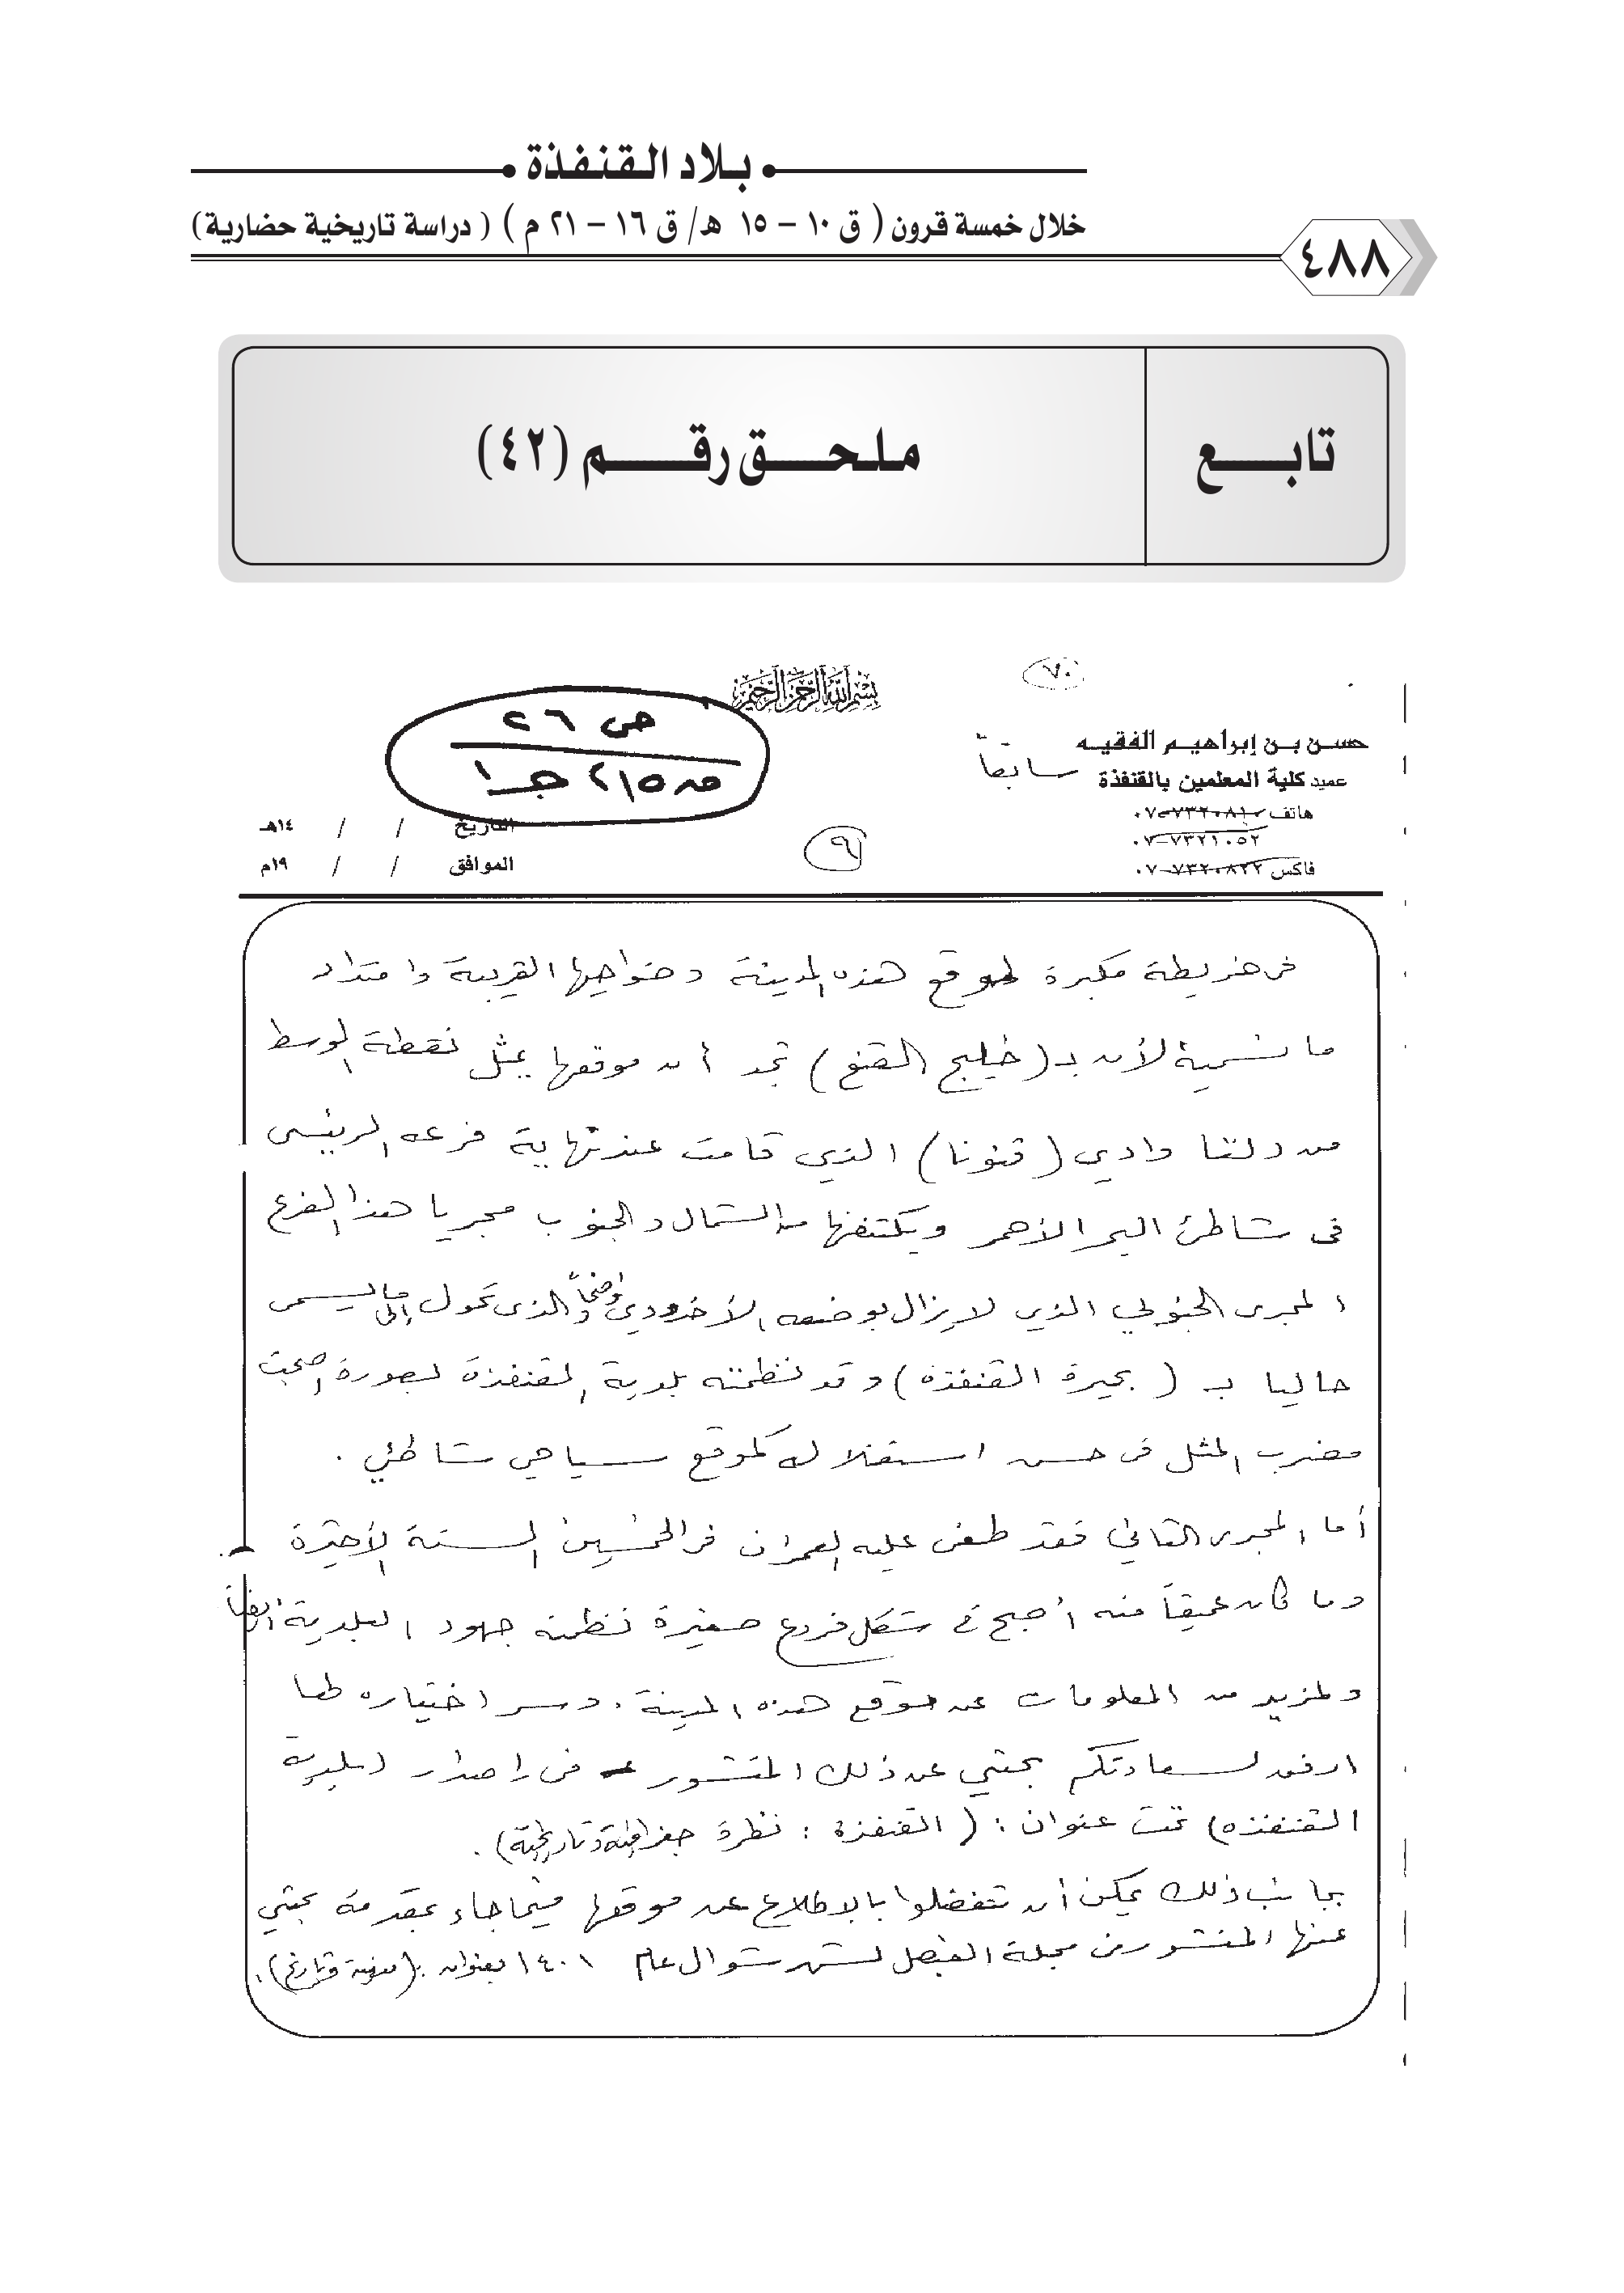 بلاد القنفذة
خلال خمسة قرون ( ق ١٠ – ١٥ هـ/ ق ١٦ – ٢١ م ) ( دراسة تاريخية حضارية)
٤٨٨
تابع
ملحق رقم (٤٢)
٧٠
بسم الله الرحمن الرحيم
٢٦
٢١٥ جـ١
حسن بن إبراهيم الفقيه
عميد كلية المعلمين بالقنفذة
سابقاً
هاتف ٧٣٢٠٨١٠-٠٧
٧٣٢١٠٥٢-٠٧
فاكس ٧٣٢٠٨٢٢-٠٧
التاريخ / / ١٤هـ
الموافق / / ١٩م
٩
فى خريطة مكبرة لموقع هذه المدينة وضواحيها القريبة وامتداد
ما نسمية لأن بـ (خليج القنع) تجد أن موقعها يمثل نقطة الوسط
من دلتا وادي (قنونا) الذي قامت عند نهاية فرعه الرئيسى
فى شاطئ البحر الأحمر ويكتنفها من الشمال والجنوب مجريا هذا الفرع
المجرى الجنوبي الذي لايزال بوضعه الأخدودي واضحاً والذى تحول إلى مايسمى
حاليا بـ (بحيرة القنفذه) وقد نظمته بلدية القنفذة بصورة اصبحت
مضرب المثل فى حسن استغلاله كموقع سياحي شاطئي .
أما المجرى الثاني فقد طغى عليه العمران فى الخمسين السنة الأخيرة
وما كان عميقاً منه أصبح في شكل فروع صغيرة نظمته جهود البلدية أيضاً
ولمزيد من المعلومات عن موقع هذه المدينة . وسر اختياره لها
ارفق لسعادتكم بحثي عن ذلك المنشور فى (اصدار لبلدية
القنفذه) تحت عنوان : ( القنفذة : نظرة جغرافية وتاريخية) .
بجانب ذلك يمكن أن تتفضلوا بالإطلاع عن موقعها فيما جاء بمقدمة بحثي
عنها المنشور فى مجلة الفيصل لشهر شوال عام ١٤٠١ بعنوان : (مدينة وتاريخ) .